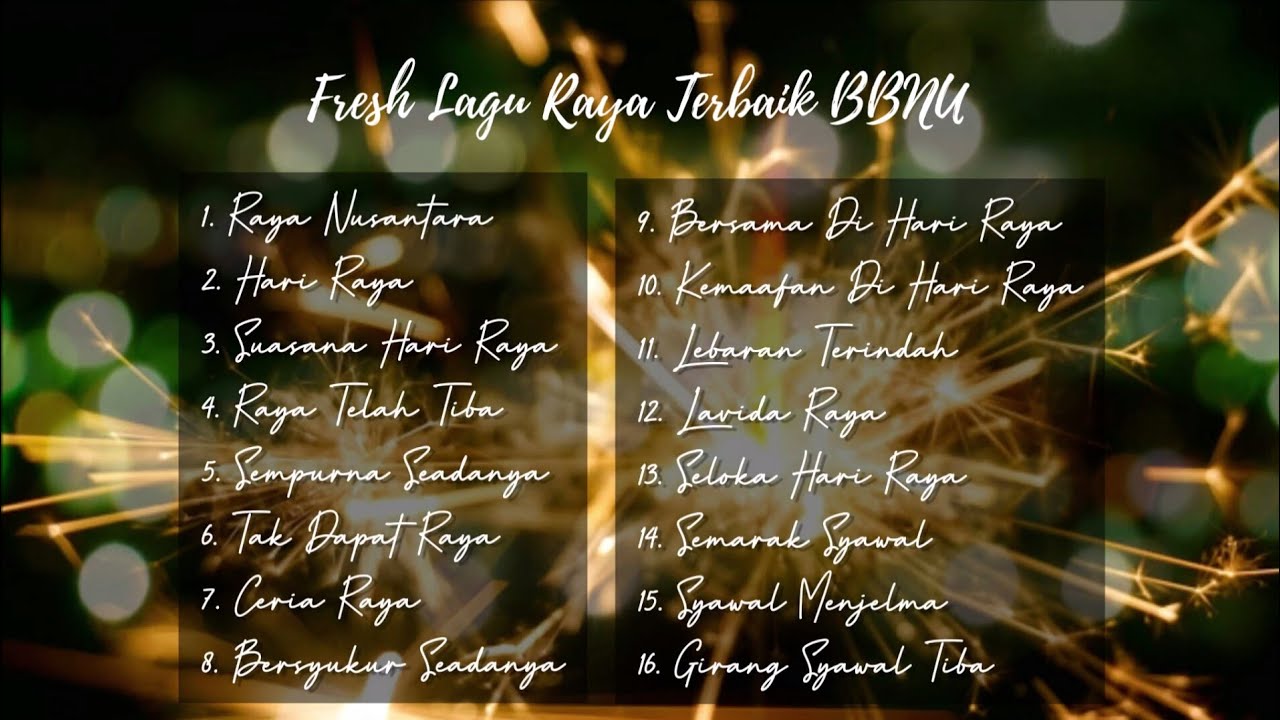 Fresh Lagu Raya Terbaik BBNU
1. Raya Nusantara
2. Hari Raya
3. Suasana Hari Raya
4. Raya Telah Tiba
5. Sempurna Seadanya
6. Tak Dapat Raya
7. Ceria Raya
8. Bersyukur Seadanya
9. Bersama Di Hari Raya
10. Kemaafan Di Hari Raya
11. Lebaran Terindah
12. Lavida Raya
13. Seloka Hari Raya
14. Semarak Syawal
15. Syawal Menjelma
16. Girang Syawal Tiba